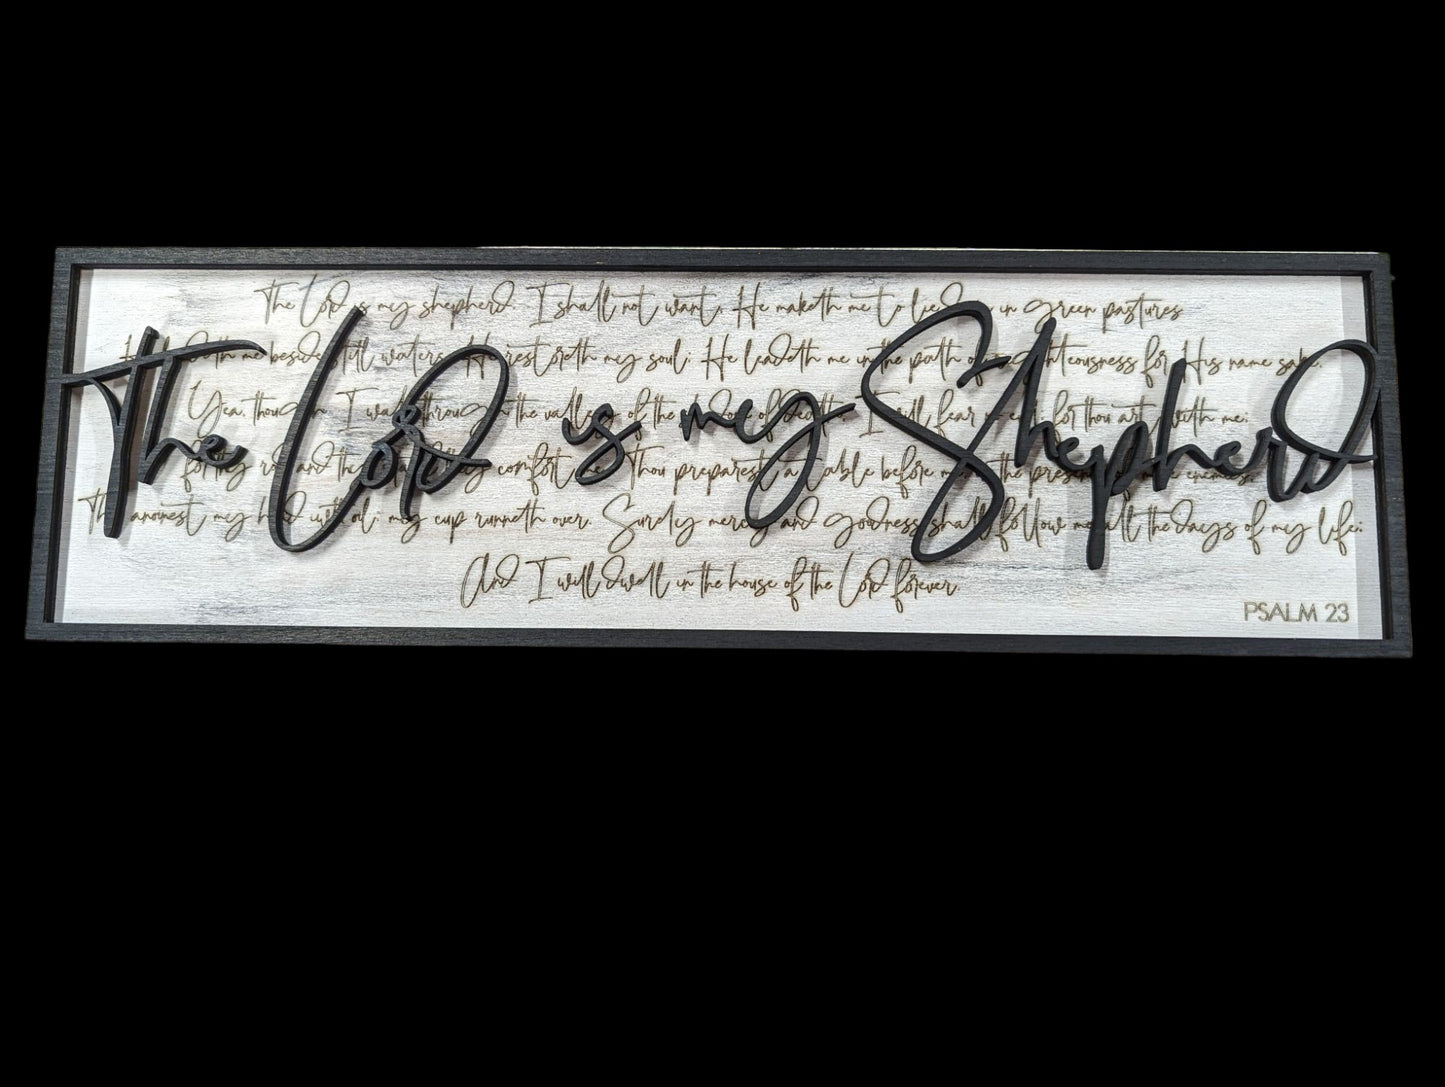 The Lord is my Shepherd
The Lord is my shepherd. I shall not want. He maketh me to lie in green pastures
me beside still waters. He restoreth my soul: He leadeth me in the path of righteousness for His name sake.
Yea, though I walk through the valley of the of death, I will fear for thou art with me:
for thy rod and comfort Thou preparest a table before the
anoinest my head with oil; my cup runneth over. Surely mercy and goodness shall follow me all the days of my life:
And I will dwell in the house of the Lord forever.
PSALM 23